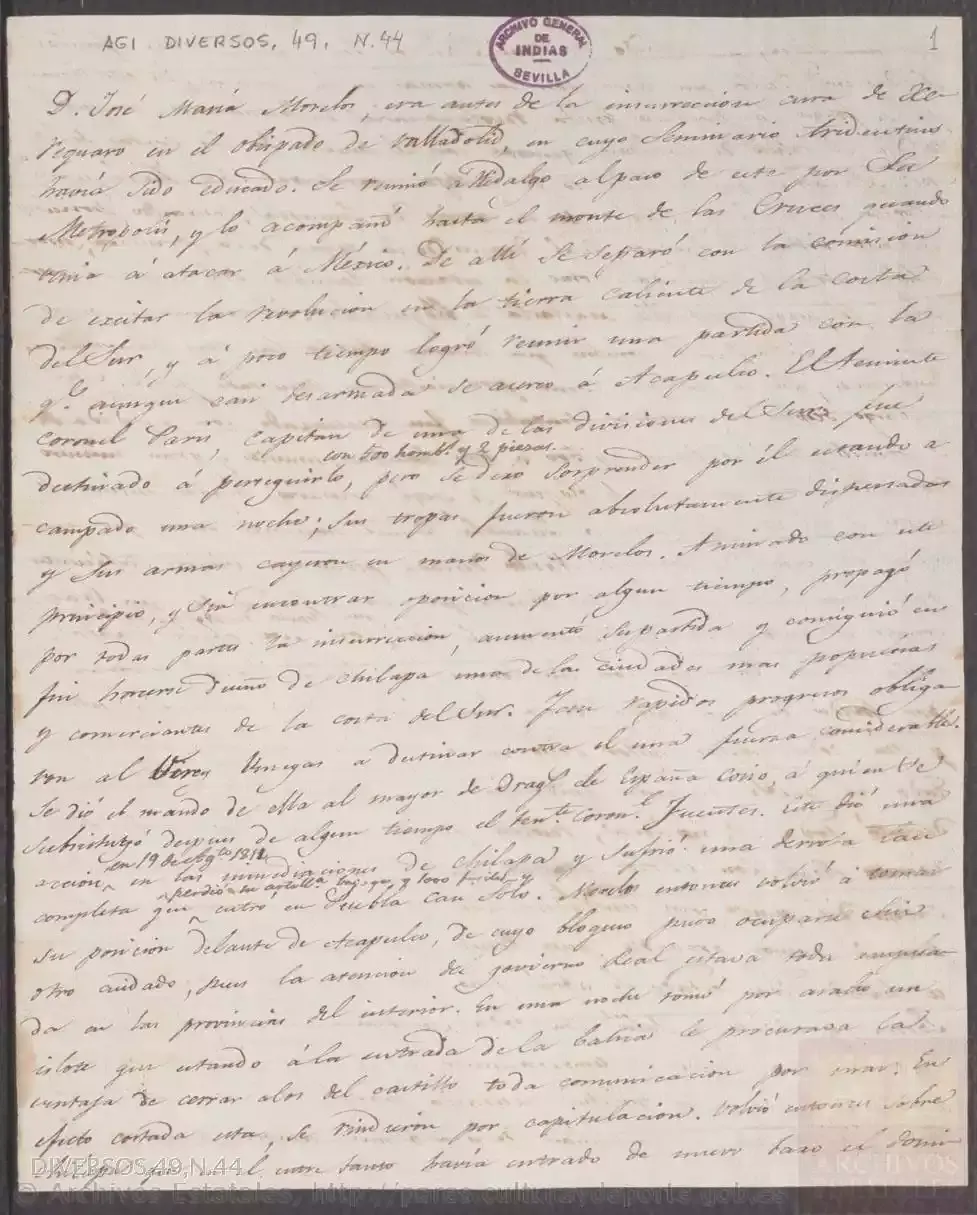 AGI DIVERSOS, 49, N.44
ARCHIVO GENERAL DE INDIAS SEVILLA
1
D. José María Morelos, era antes de la insurreccion cura de Xe-
requaro en el obispado de Valladolid, en cuyo Seminario tridentino
havia sido educado. Se reunió a Hidalgo al paso de este por Su
Metropoli, y lo acompañó hasta el monte de las Cruces quando
venia á atacar á México. De allí se separó con la comision
de excitar la revolucion en la tierra caliente de la Costa
del Sur, y á poco tiempo logró reunir una partida con la
q.e aunque casi desarmada se acercó á Acapulco. El teniente
coronel Paris, capitan de una de las divisiones del Sur fue
con 500 homb.s y 2 piezas.
destinado á perseguirlo, pero se dexó sorprender por él estando a
campado una noche; sus tropas fueron absolutamente dispersadas
y sus armas cayeron en manos de Morelos. Animado con este
principio, y sin encontrar oposicion por algun tiempo, propagó
por todas partes la insurreccion, aumentó su partida y consiguió en
fin hacerse dueño de Chilapa, una de las ciudades mas populosas
y comerciantes de la costa del Sur. Tan rapidos progresos obliga
ron al Virey Venegas a destinar contra el una fuerza considerable.
Se dió el mando de ella al mayor de Drag.s de España Cosio, á quien se
substituyó despues de algun tiempo el ten.te coron.l Fuentes. Este dió una
en 19 de Ag.to 1811
accion en las inmediaciones de Chilapa y sufrió una derrota tan
perdió su artill.a y 1000 fusiles y
completa que entró en Puebla casi solo. Morelos entonces volvió á tomar
su posicion delante de Acapulco, de cuyo bloqueo pudo ocuparse sin
otro cuidado, pues la atencion del govierno Real estava toda emplea-
da en las provincias del interior. En una noche tomó por asalto un
islote que estando á la entrada de la bahia le procurava la
ventaja de cerrar a los del castillo toda comunicacion por mar. En
efecto cortada esta, se rindieron por capitulacion. Volvió entonces sobre
Chilapa que en el entre tanto havia entrado de nuevo baxo el domi
DIVERSOS,49,N.44
© Archivos Estatales, http://pares.culturaydeporte.gob.es
ARCHIVOS ESTATALES